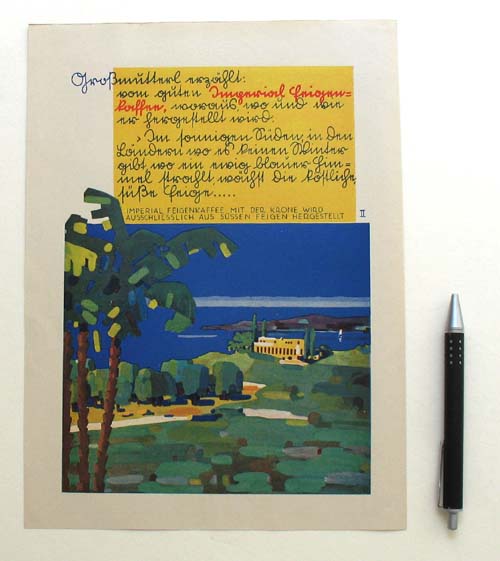 Großmütterl erzählt:
vom guten Imperial Feigen=
kaffee, woraus, wo und wie
er hergestellt wird.
„Im sonnigen Süden, in den
Ländern wo es keinen Winter
gibt, wo ein ewig blauer Him=
mel strahlt, wächst die köstliche,
süße Feige.....
IMPERIAL FEIGENKAFFEE MIT DER KRONE WIRD
AUSSCHLIESSLICH AUS SÜSSEN FEIGEN HERGESTELLT II